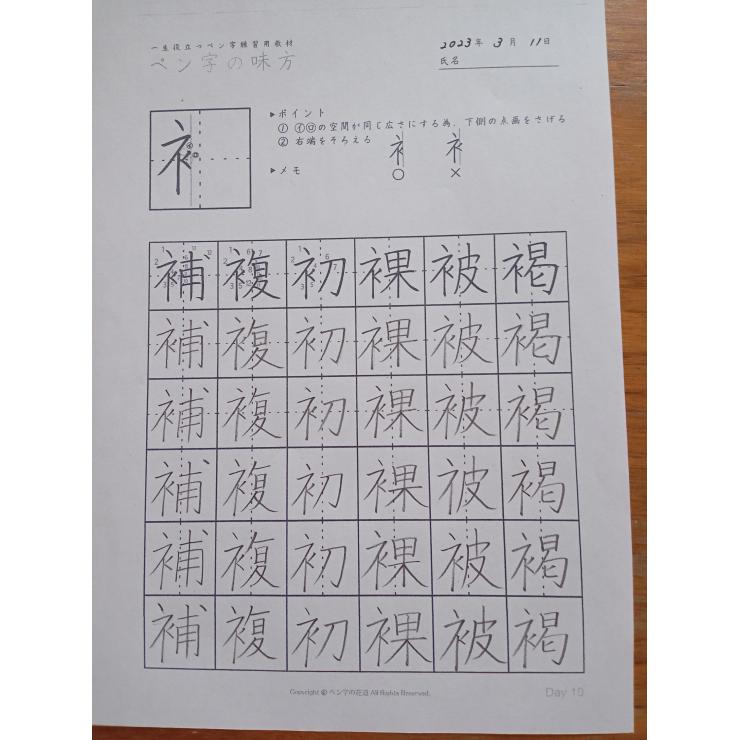 一生役立つペン字練習用教材
ペン字の味方
2023年 3月 11日
氏名
▶ポイント
① ㋑㋺の空間が同じ広さにする為、下側の点画をさげる
② 右端をそろえる
▶メモ
○ ×
補 複 初 裸 被 褐
補 複 初 裸 被 褐
補 複 初 裸 被 褐
補 複 初 裸 被 褐
補 複 初 裸 被 褐
補 複 初 裸 被 褐
Copyright © ペン字の花道 All Rights Reserved.
Day 10